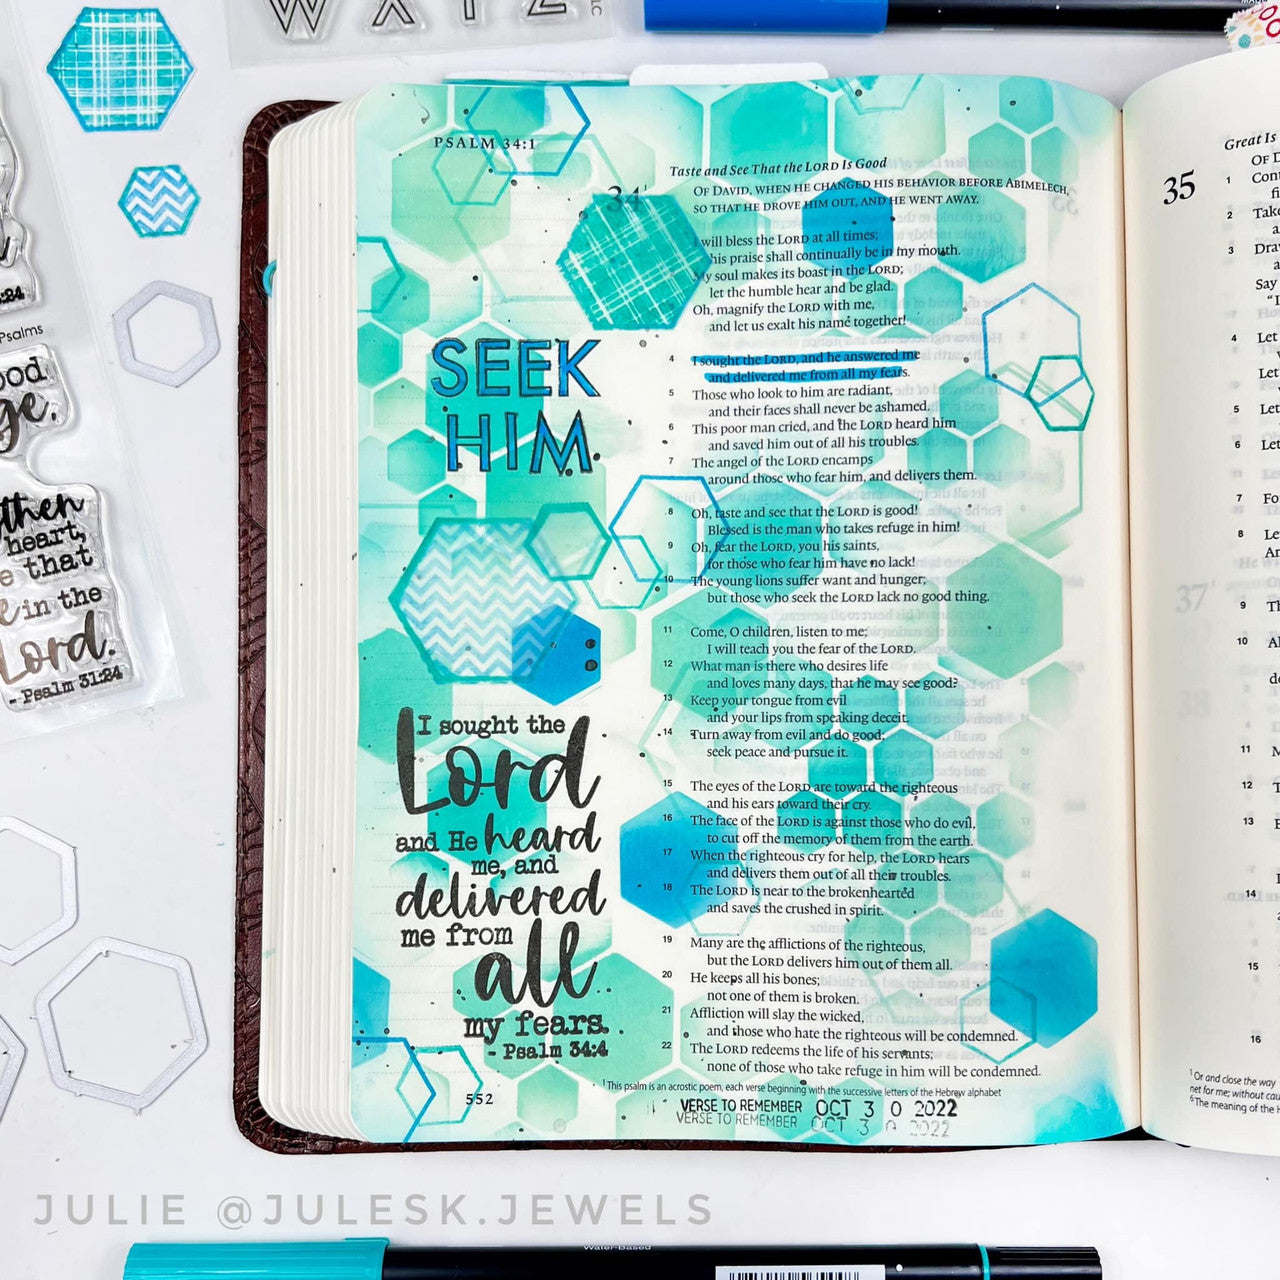 W X Y Z
LLC
PSALM 34:1
Taste and See That the LORD Is Good
34¹
OF DAVID, WHEN HE CHANGED HIS BEHAVIOR BEFORE ABIMELECH,
SO THAT HE DROVE HIM OUT, AND HE WENT AWAY.
I will bless the LORD at all times;
his praise shall continually be in my mouth.
My soul makes its boast in the LORD;
let the humble hear and be glad.
Oh, magnify the LORD with me,
and let us exalt his name together!
4 I sought the LORD, and he answered me
and delivered me from all my fears.
5 Those who look to him are radiant,
and their faces shall never be ashamed.
6 This poor man cried, and the LORD heard him
and saved him out of all his troubles.
7 The angel of the LORD encamps
around those who fear him, and delivers them.
8 Oh, taste and see that the LORD is good!
Blessed is the man who takes refuge in him!
9 Oh, fear the LORD, you his saints,
for those who fear him have no lack!
10 The young lions suffer want and hunger;
but those who seek the LORD lack no good thing.
11 Come, O children, listen to me;
I will teach you the fear of the LORD.
12 What man is there who desires life
and loves many days, that he may see good?
13 Keep your tongue from evil
and your lips from speaking deceit.
14 Turn away from evil and do good;
seek peace and pursue it.
15 The eyes of the LORD are toward the righteous
and his ears toward their cry.
16 The face of the LORD is against those who do evil,
to cut off the memory of them from the earth.
17 When the righteous cry for help, the LORD hears
and delivers them out of all their troubles.
18 The LORD is near to the brokenhearted
and saves the crushed in spirit.
19 Many are the afflictions of the righteous,
but the LORD delivers him out of them all.
20 He keeps all his bones;
not one of them is broken.
21 Affliction will slay the wicked,
and those who hate the righteous will be condemned.
22 The LORD redeems the life of his servants;
none of those who take refuge in him will be condemned.
¹This psalm is an acrostic poem, each verse beginning with the successive letters of the Hebrew alphabet
VERSE TO REMEMBER OCT 3 0 2022
VERSE TO REMEMBER OCT 3 0 2022
SEEK
HIM
I sought the
Lord
and He heard
me, and
delivered
me from
all
my fears.
- Psalm 34:4
552
Psalms
heart,
that
in the
Lord.
- Psalm 31:24
Great Is
35
OF D
1 Cont
2 Take
3 Draw
Say
"I
4 Let
Let
5 Let
6 Let
7 Fo
8 Le
9 Th
10 Al
11 M
12 T
13
14
15
16
¹Or and close the way
net for me; without cau
⁶The meaning of the H
Water-Based
JULIE @JULESK.JEWELS